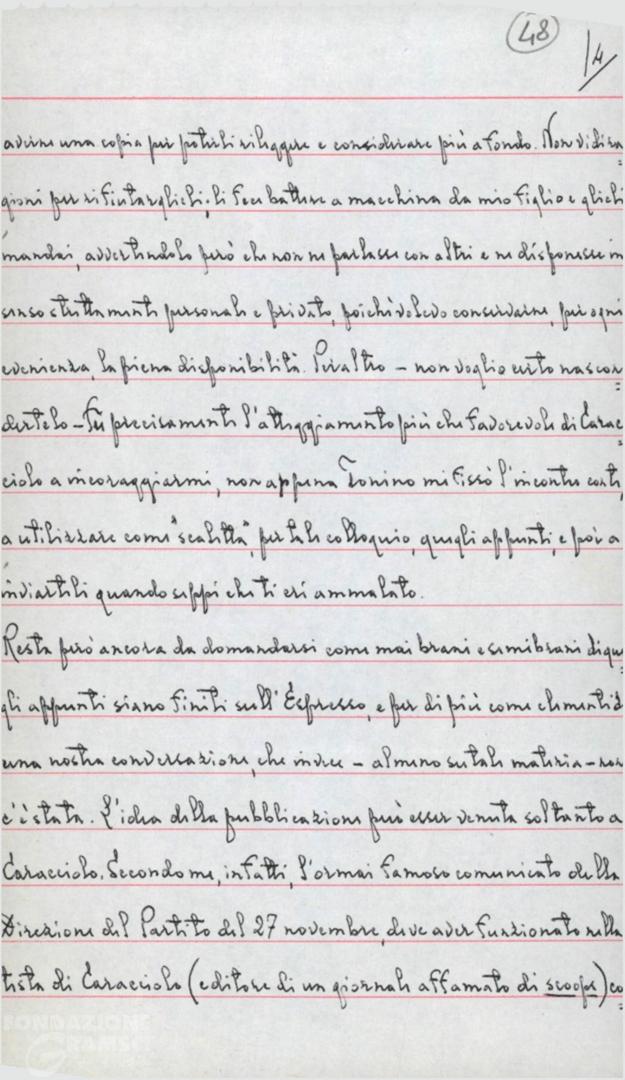 48
14
averne una copia per poterli rileggere e considerare più a fondo. Non vidi ra=
gioni per rifiutarglieli; li feci battere a macchina da mio figlio e glieli
mandai, avvertendolo però che non ne parlasse con altri e ne disponesse in
senso strettamente personale e privato, poiché volevo conservarne, per ogni
evenienza, la piena disponibilità. Peraltro – non voglio certo nascon=
dertelo – fu precisamente l'atteggiamento più che favorevole di Carac=
ciolo a incoraggiarmi, non appena Tonino mi fissò l'incontro con te,
a utilizzare come "scaletta", per tale colloquio, quegli appunti, e poi a
inviarteli quando seppi che ti eri ammalato.
Resta però ancora da domandarsi come mai brani e semibrani di que=
gli appunti siano finiti sull'Espresso, e per di più come elementi d
una nostra conversazione, che invece – almeno su tale materia – non
c'è stata. L'idea della pubblicazione può esser venuta soltanto a
Caracciolo. Secondo me, infatti, l'ormai famoso comunicato della
Direzione del Partito del 27 novembre, deve aver funzionato nella
testa di Caracciolo (editore di un giornale affamato di scoops) co=
FONDAZIONE
GRAMSCI